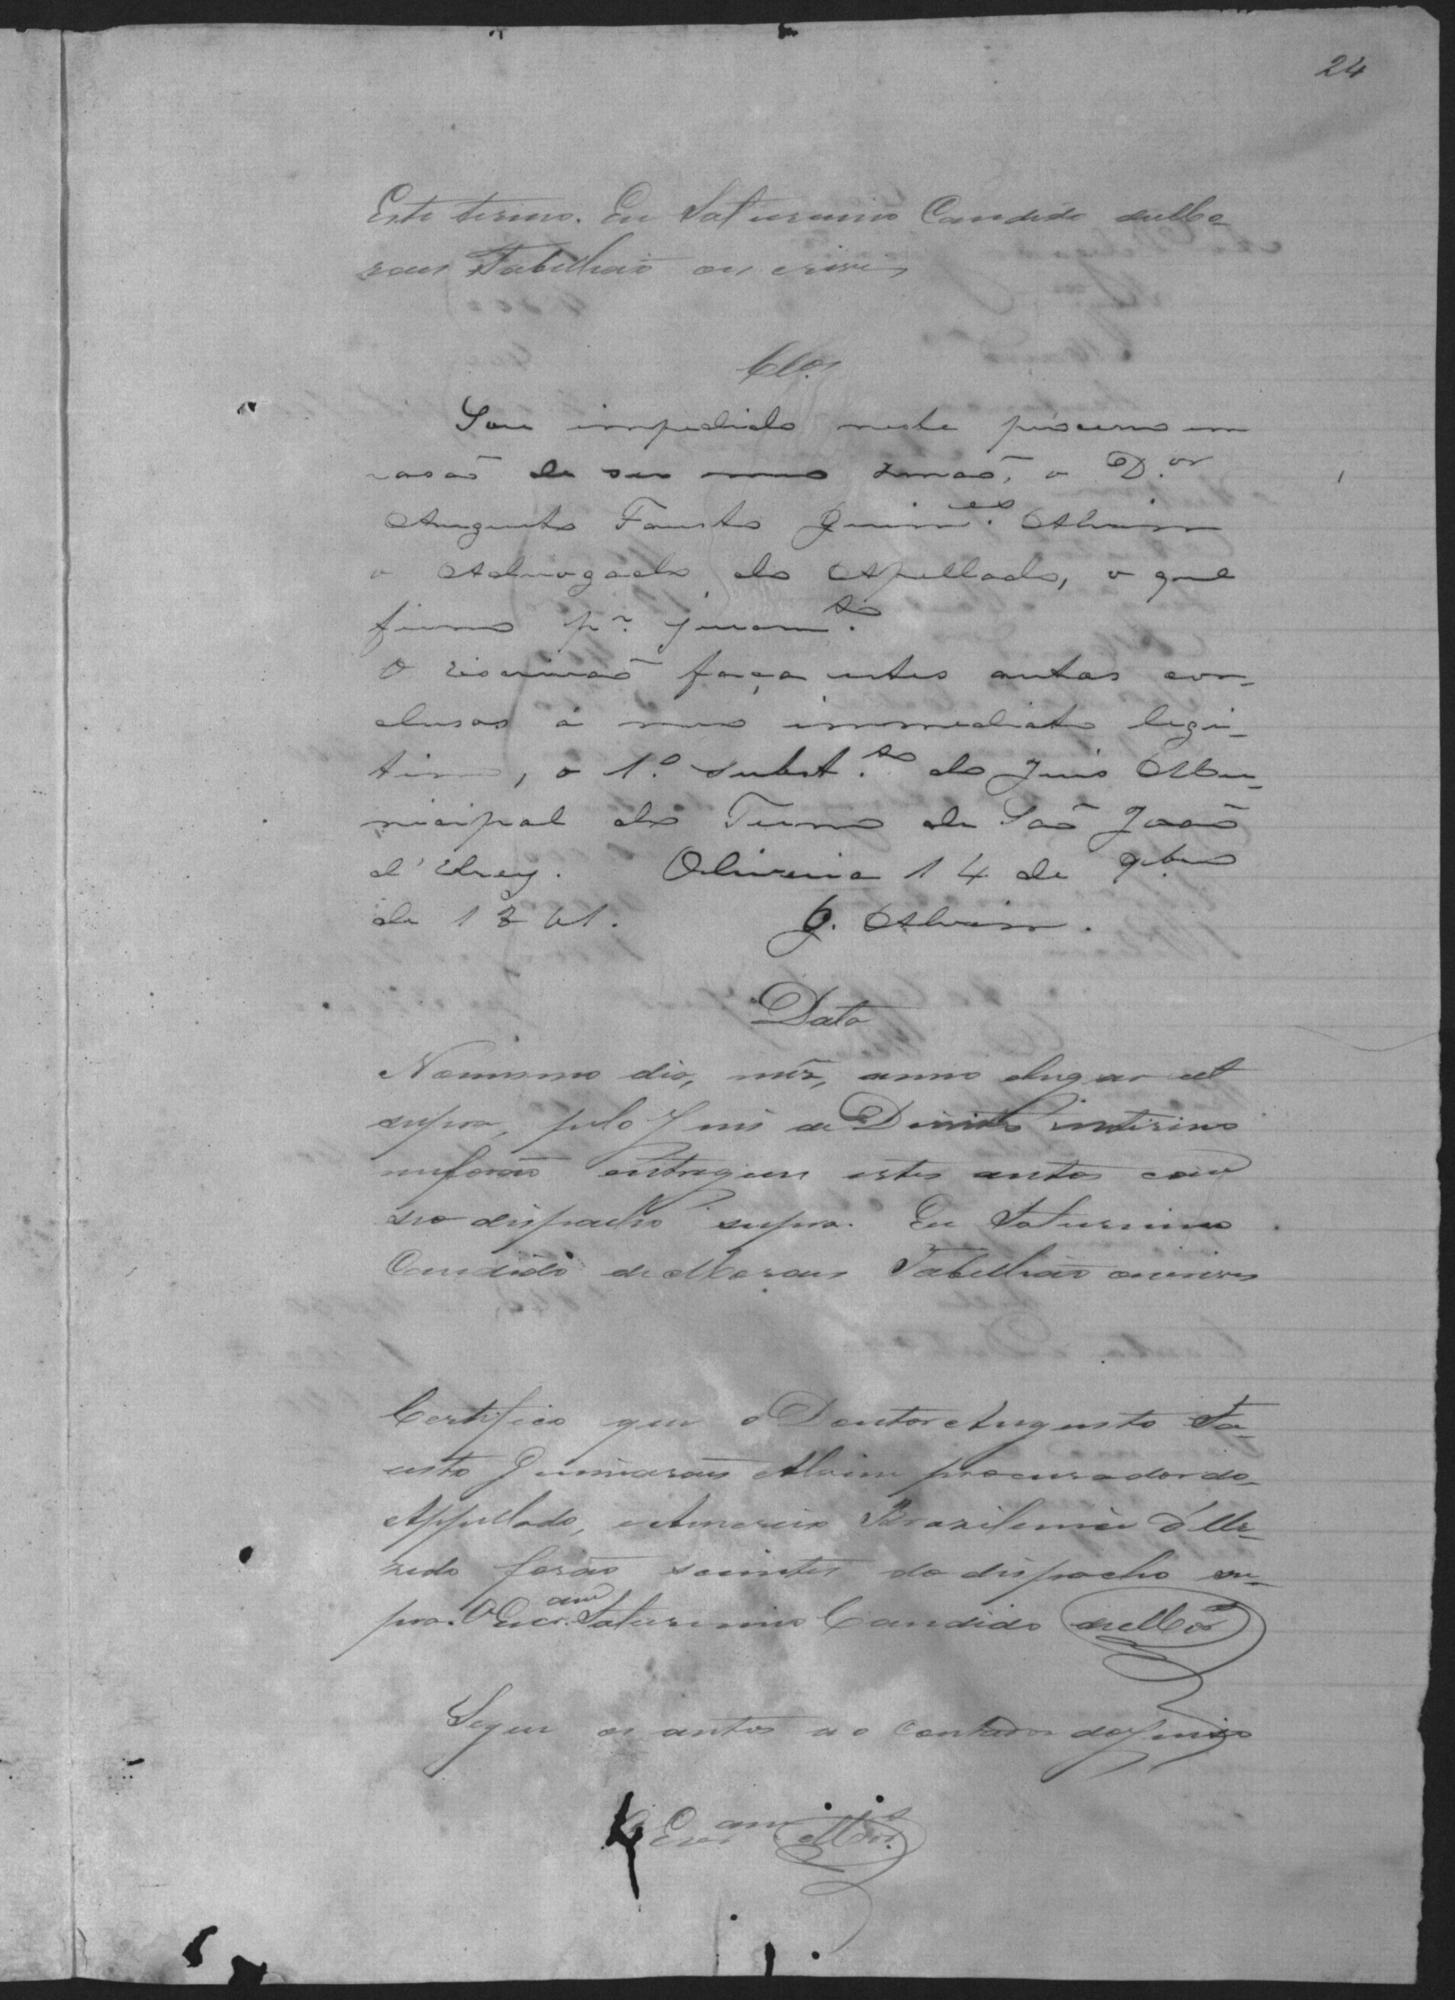 24
Este termo. Eu Saturnino Candido de Mo-
raes Tabellião os escrevi
Clos
Sou impedido neste processo em
rasaõ de ser meo Irmaõ, o D.or
Augusto Fausto Guim.es Alvim
o Advogado do Apellado, o que
firmo p.r juram.to
O escrivaõ faça estes autos con-
clusos á meo immediato legi-
timo, o 1.º subst.to do Juis Mu-
nicipal do Termo de Saõ Joaõ
d'Elrey. Oliveira 14 de 9bro
de
G. Alvim.
Data
No mesmo dia, mez, anno elugar ut
supra, pelo Juis de Direito interino
meforão entregues estes autos com
seo dispacho supra. Eu Saturnino
Candido de Moraes Tabellião o escrevi
Certifico que o Doutor Augusto Fa-
usto Guimarães Alvim procurador do
Appellado, e Americo Brazileiro
forão scientes do dispacho su-
pra. O Escr.am Saturnino Candido de Mor.s
Segue os autos ao Contador do Juizo
O Escr.am Mor.s